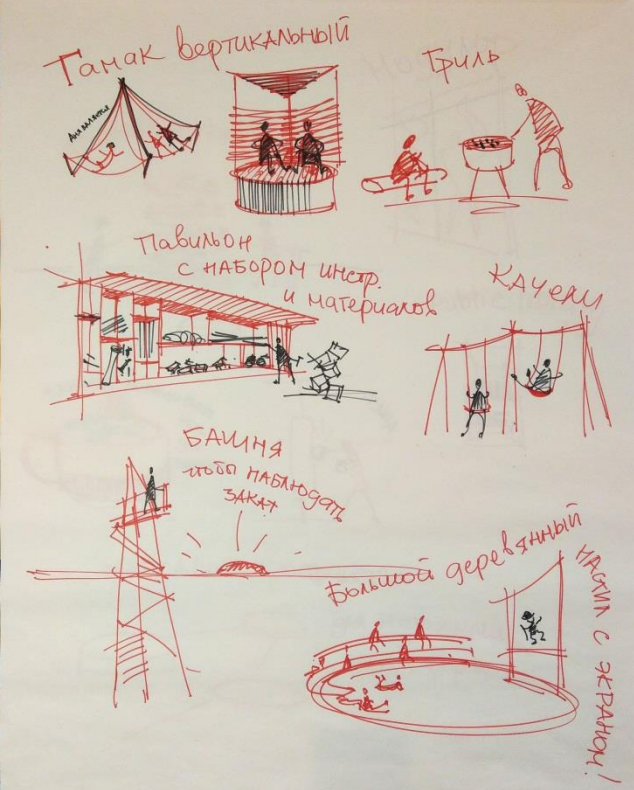 Гамак вертикальный
Гриль
Павильон
с набором инстр.
и материалов
КАЧЕЛИ
БАШНЯ
чтобы НАБЛЮДАТЬ
ЗАКАТ
Большой деревянный
НАСТИЛ С ЭКРАНОМ!